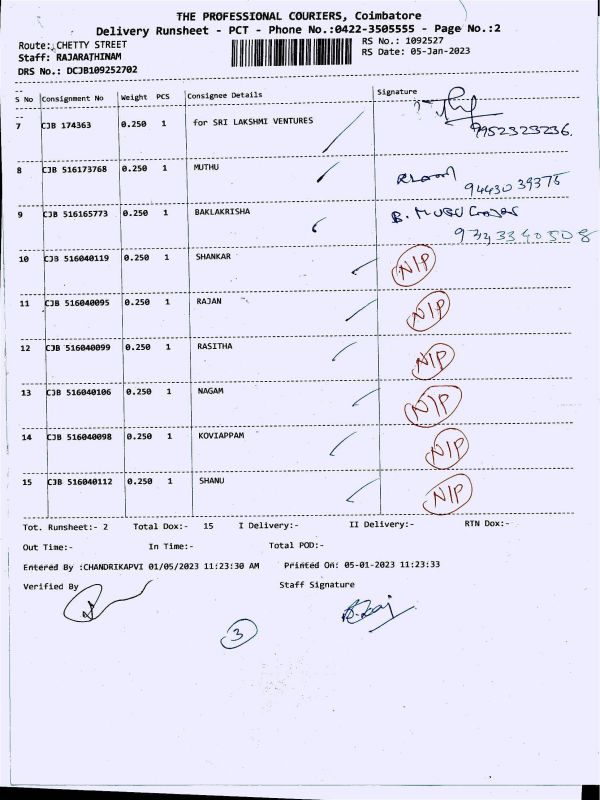 THE PROFESSIONAL COURIERS, Coimbatore
Delivery Runsheet - PCT - Phone No.:0422-3505555 - Page No.:2
Route: CHETTY STREET RS No.: 1092527
Staff: RAJARATHINAM RS Date: 05-Jan-2023
DRS No.: DCJB109252702
S No Consignment No Weight PCS Consignee Details Signature
7 CJB 174363 0.250 1 for SRI LAKSHMI VENTURES
9952323236.
8 CJB 516173768 0.250 1 MUTHU
9443039375
9 CJB 516165773 0.250 1 BAKLAKRISHA B.
9343340508
10 CJB 516040119 0.250 1 SHANKAR N/P
11 CJB 516040095 0.250 1 RAJAN N/P
12 CJB 516040099 0.250 1 RASITHA N/P
13 CJB 516040106 0.250 1 NAGAM N/P
14 CJB 516040098 0.250 1 KOVIAPPAM N/P
15 CJB 516040112 0.250 1 SHANU N/P
Tot. Runsheet:- 2 Total Dox:- 15 I Delivery:- II Delivery:- RTN Dox:-
Out Time:- In Time:- Total POD:-
Entered By :CHANDRIKAPVI 01/05/2023 11:23:30 AM Printed On: 05-01-2023 11:23:33
Verified By Staff Signature
3